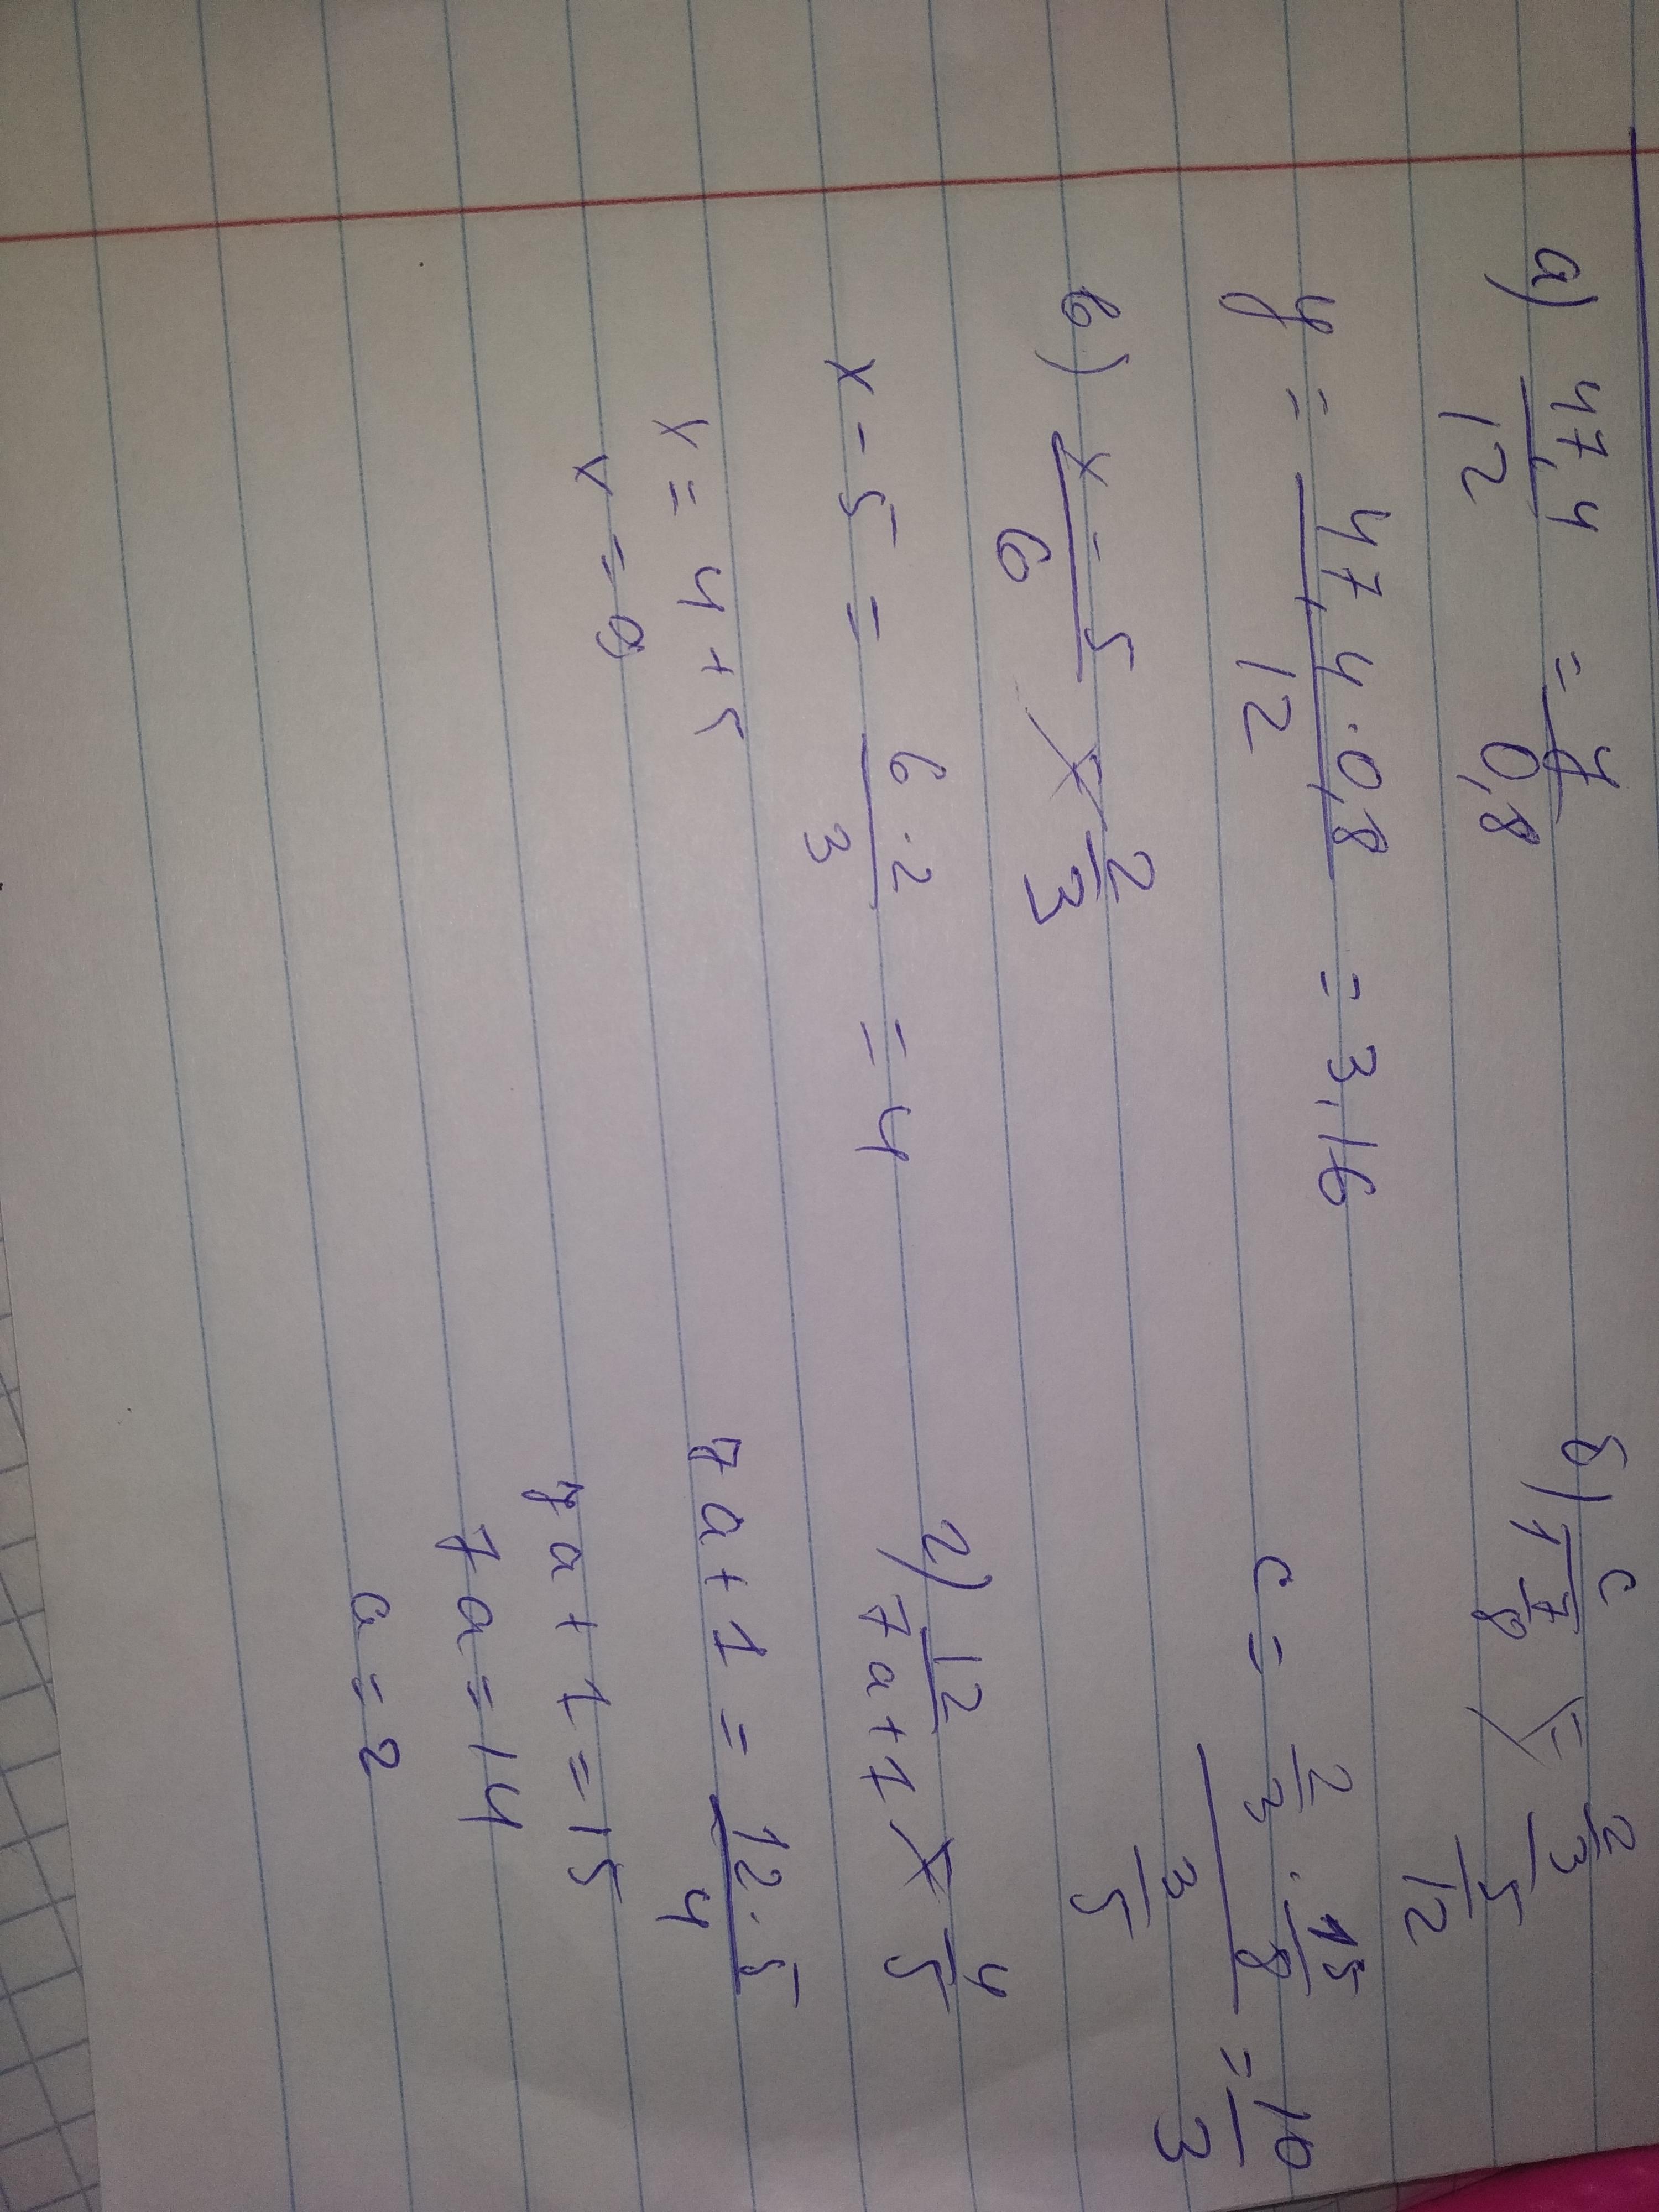 а) 47,4/12 = y/0,8
y = 47,4·0,8/12 = 3,16
в) x-5/6 = 2/3
x-5 = 6·2/3 = 4
x = 4+5
x = 9
б) c/1 7/8 = 2/3/5/12
c = 2/3 · 15/8 / 3/5 = 10/3
г) 12/7a+1 = 4/5
7a+1 = 12·5/4
7a+1=15
7a=14
a=2